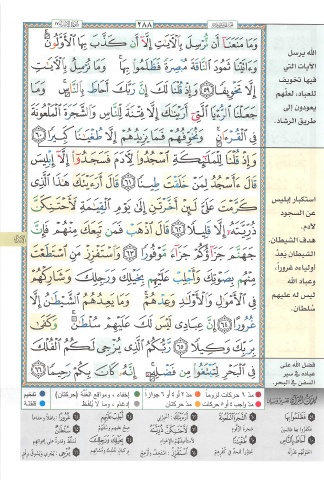 ٢٨٨
وَمَا مَنَعَنَا أَن نُّرْسِلَ بِالْآيَاتِ إِلَّا أَن كَذَّبَ بِهَا الْأَوَّلُونَ
وَآتَيْنَا ثَمُودَ النَّاقَةَ مُبْصِرَةً فَظَلَمُوا بِهَا وَمَا نُرْسِلُ بِالْآيَاتِ
إِلَّا تَخْوِيفًا ٥٩ وَإِذْ قُلْنَا لَكَ إِنَّ رَبَّكَ أَحَاطَ بِالنَّاسِ وَمَا
جَعَلْنَا الرُّؤْيَا الَّتِي أَرَيْنَاكَ إِلَّا فِتْنَةً لِّلنَّاسِ وَالشَّجَرَةَ الْمَلْعُونَةَ
فِي الْقُرْآنِ وَنُخَوِّفُهُمْ فَمَا يَزِيدُهُمْ إِلَّا طُغْيَانًا كَبِيرًا ٦٠
وَإِذْ قُلْنَا لِلْمَلَائِكَةِ اسْجُدُوا لِآدَمَ فَسَجَدُوا إِلَّا إِبْلِيسَ
قَالَ أَأَسْجُدُ لِمَنْ خَلَقْتَ طِينًا ٦١ قَالَ أَرَأَيْتَكَ هَٰذَا الَّذِي
كَرَّمْتَ عَلَيَّ لَئِنْ أَخَّرْتَنِ إِلَىٰ يَوْمِ الْقِيَامَةِ لَأَحْتَنِكَنَّ
ذُرِّيَّتَهُ إِلَّا قَلِيلًا ٦٢ قَالَ اذْهَبْ فَمَن تَبِعَكَ مِنْهُمْ فَإِنَّ
جَهَنَّمَ جَزَاؤُكُمْ جَزَاءً مَّوْفُورًا ٦٣ وَاسْتَفْزِزْ مَنِ اسْتَطَعْتَ
مِنْهُم بِصَوْتِكَ وَأَجْلِبْ عَلَيْهِم بِخَيْلِكَ وَرَجِلِكَ وَشَارِكْهُمْ
فِي الْأَمْوَالِ وَالْأَوْلَادِ وَعِدْهُمْ وَمَا يَعِدُهُمُ الشَّيْطَانُ إِلَّا
غُرُورًا ٦٤ إِنَّ عِبَادِي لَيْسَ لَكَ عَلَيْهِمْ سُلْطَانٌ وَكَفَىٰ
بِرَبِّكَ وَكِيلًا ٦٥ رَّبُّكُمُ الَّذِي يُزْجِي لَكُمُ الْفُلْكَ
فِي الْبَحْرِ لِتَبْتَغُوا مِن فَضْلِهِ إِنَّهُ كَانَ بِكُمْ رَحِيمًا ٦٦
الله يرسل
الآيات التي
فيها تخويف
للعباد، لعلّهم
يعودون إلى
طريق الرشاد.
استكبار إبليس
عن السجود
لآدم.
هدف الشيطان.
الشيطان يَعِدُ
أولياءه غروراً،
وعباد الله
ليس له عليهم
سلطان.
فضل الله على
عباده في سير
السفن في البحر.
مدّ ٦ حركات لزوماً
مدّ ٢ أو ٤ أو ٦ جوازاً
إخفاء، ومواقع الغنّة (حركتان)
تفخيم
مدّ واجب ٤ أو ٥ حركات
مدّ حركتان
إدغام، وما لا يُلفظ
قلقلة